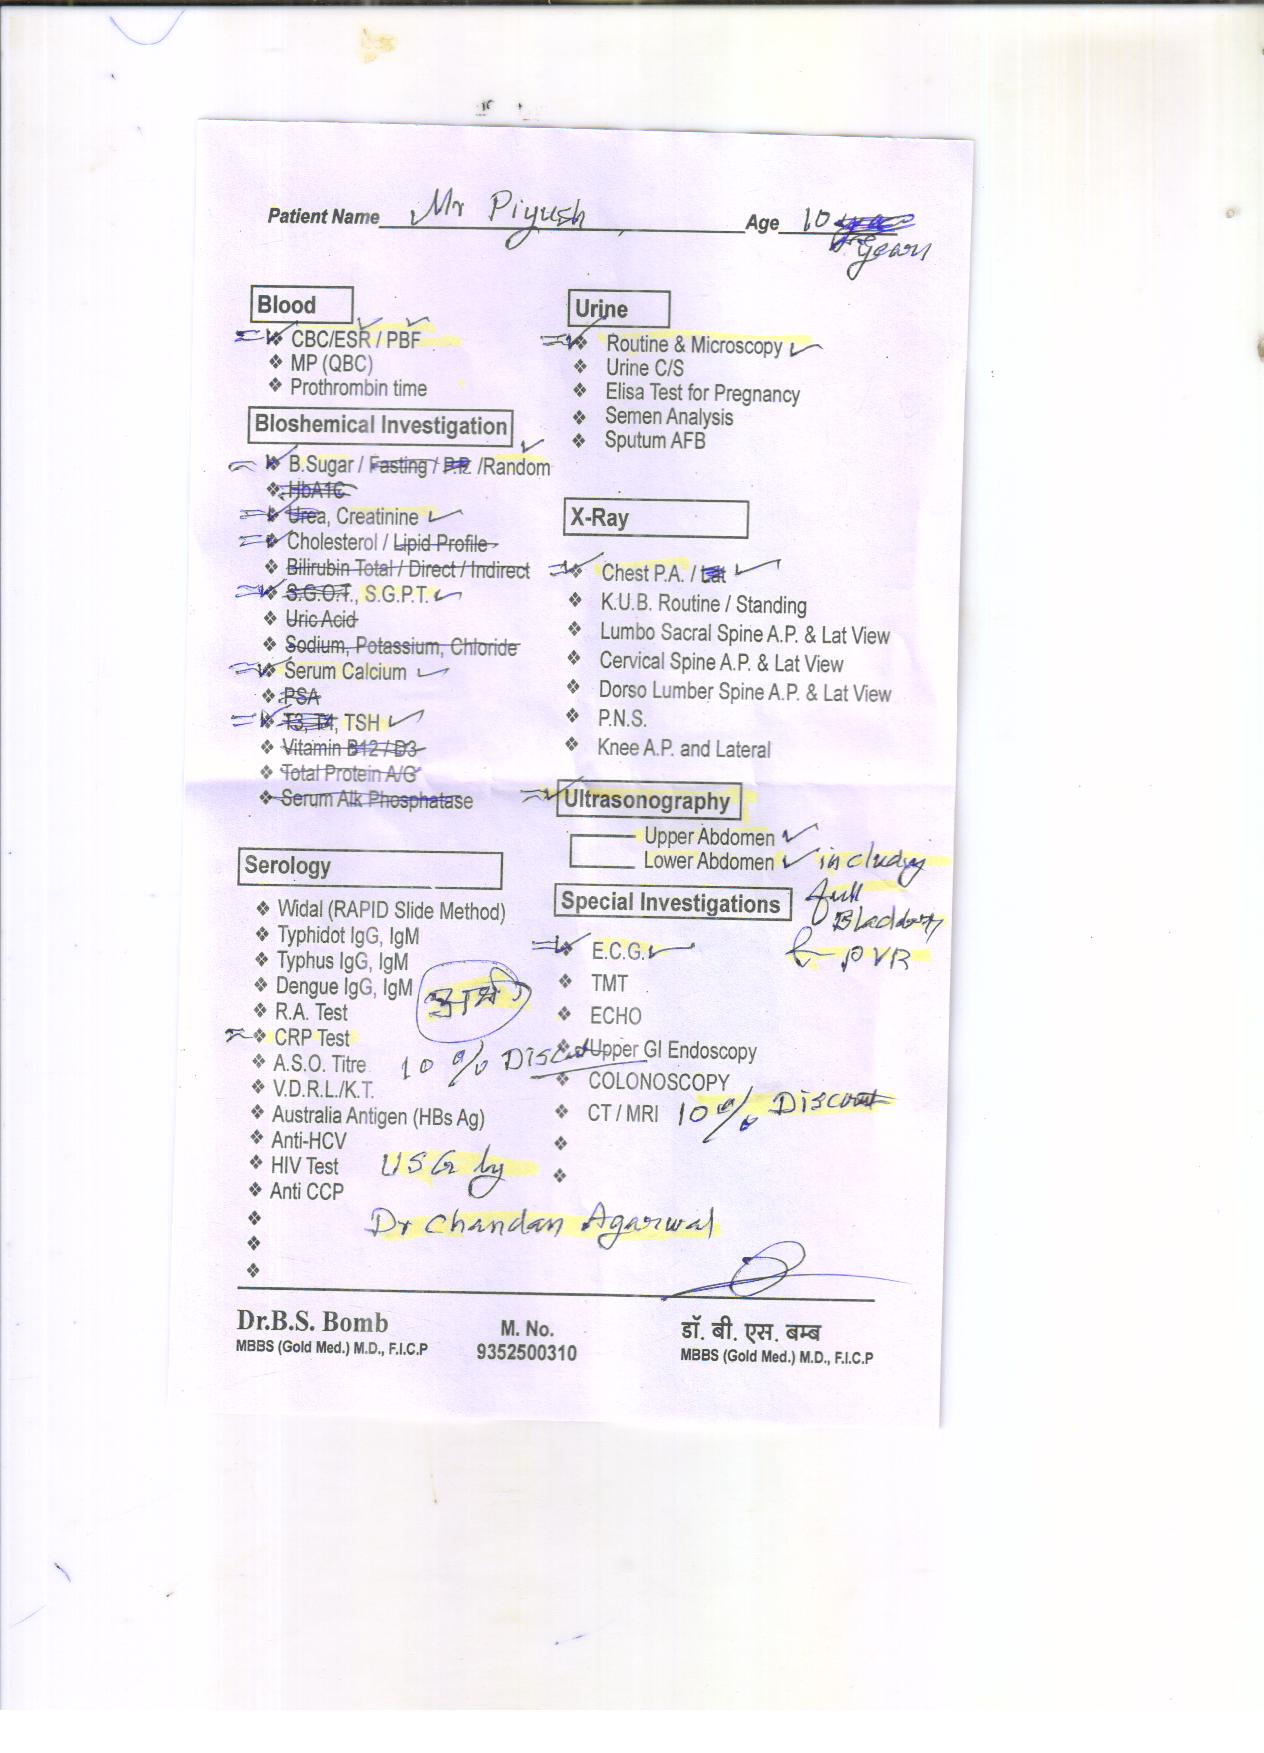 Patient Name Mr Piyush Age 10 years
Blood
CBC/ESR / PBF
MP (QBC)
Prothrombin time
Bloshemical Investigation
B.Sugar / Fasting / P.P. /Random
HbA1C
Urea, Creatinine
Cholesterol / Lipid Profile
Bilirubin Total / Direct / Indirect
S.G.O.T., S.G.P.T.
Uric Acid
Sodium, Potassium, Chloride
Serum Calcium
PSA
T3, T4, TSH
Vitamin B12 / D3
Total Protein A/G
Serum Alk Phosphatase
Serology
Widal (RAPID Slide Method)
Typhidot IgG, IgM
Typhus IgG, IgM
Dengue IgG, IgM
R.A. Test
CRP Test
A.S.O. Titre
10 % Discount
V.D.R.L./K.T.
Australia Antigen (HBs Ag)
Anti-HCV
HIV Test
Anti CCP
Urine
Routine & Microscopy
Urine C/S
Elisa Test for Pregnancy
Semen Analysis
Sputum AFB
X-Ray
Chest P.A. / Lat
K.U.B. Routine / Standing
Lumbo Sacral Spine A.P. & Lat View
Cervical Spine A.P. & Lat View
Dorso Lumber Spine A.P. & Lat View
P.N.S.
Knee A.P. and Lateral
Ultrasonography
Upper Abdomen
Lower Abdomen including
full
Bladder
& PVR
Special Investigations
E.C.G.
TMT
ECHO
Upper GI Endoscopy
COLONOSCOPY
CT / MRI 10 % Discount
USG by
Dr Chandan Agarwal
Dr.B.S. Bomb
MBBS (Gold Med.) M.D., F.I.C.P
M. No.
9352500310
डॉ. बी. एस. बम्ब
MBBS (Gold Med.) M.D., F.I.C.P